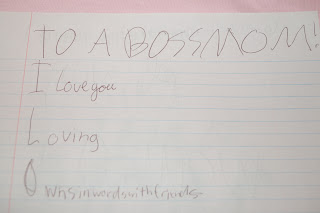 TO A BOSSMOM!
I love you
Loving
Ownsinwordswithfriends